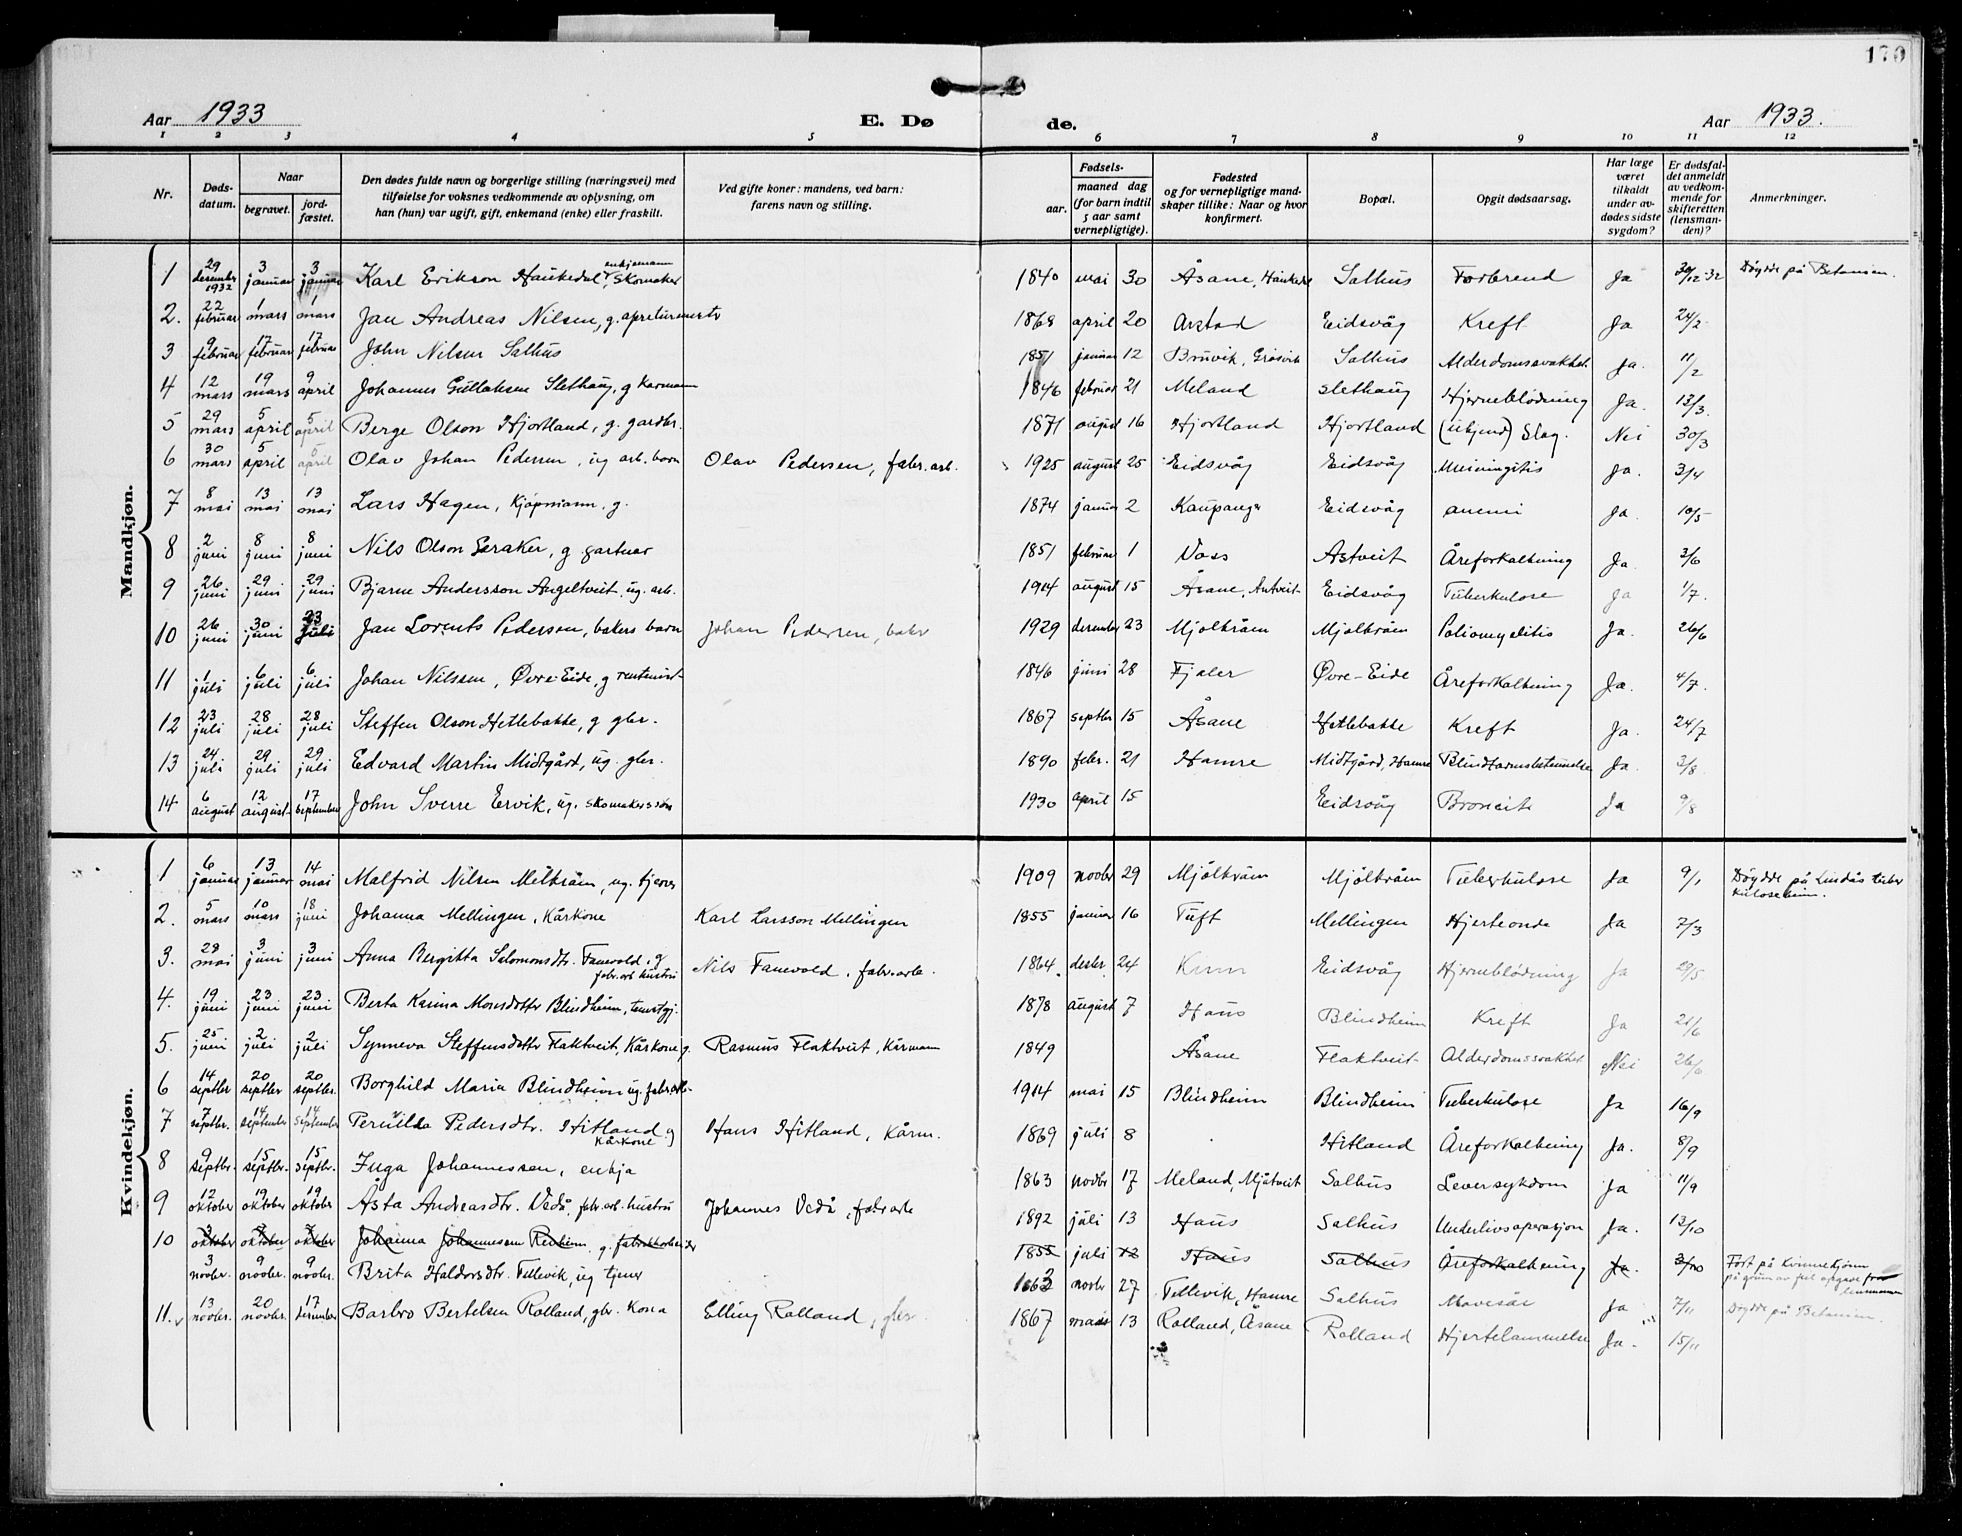 170
Aar 1933
E. Dø
de.
Aar 1933.
1 2 3 4 5 6 7 8 9 10 11 12
Nr.
Døds-
datum.
Naar
begravet.
jord-
fæstet.
Den dødes fulde navn og borgerlige stilling (næringsvei) med
tilføielse for voksnes vedkommende av oplysning, om
han (hun) var ugift, gift, enkemand (enke) eller fraskilt.
Ved gifte koner: mandens, ved barn:
farens navn og stilling.
Fødsels-
aar.
maaned dag
(for barn indtil
5 aar samt
vernepligtige).
Fødested
og for vernepligtige mand-
skaper tillike: Naar og hvor
konfirmert.
Bopæl.
Opgit dødsaarsag.
Har læge
været
tilkaldt
under av-
dødes sidste
sygdom?
Er dødsfal-
det anmeldt
av vedkom-
mende for
skifteretten
(lensman-
den)?
Anmerkninger.
Mandkjøn.
1 29 desember 1932 3 januar 3 januar Karl Erikson Haukedal, enkjemann skomaker 1840 mai 30 Åsane, Haukedal Salhus Forbrend Ja 30/12-32 Döydde på Betanien.
2. 22 februar 1 mars 1 mars Jan Andreas Nilsen, g. apreturmester 1868 april 20 Årstad Eidsvåg Kreft Ja 24/2
3 9 februar 17 februar 17 februar John Nilsen Salhus 1851 januar 12 Bruvik, Salhus Alderdomssvakhet Ja. 11/2
4 12 mars 19 mars 9 april Johannes Gullaksen Slethaug, g Karmann 1846 februar 21 Meland Slethaug Hjerneblödning Ja. 13/3.
5 29 mars 5 april 5 april Berge Olson Hjortland, g. gardbr. 1871 august 16 Hjortland Hjortland (ukjend) Slag. Nei 30/3
6 30 mars 5 april 5 april Olav Johan Pedersen, ug arb. barn Olav Pedersen, fabr. arb. 1925 august 25 Eidsvåg Eidsvåg Meiningitis Ja. 3/4
7 8 mai 13 mai 13 mai Lars Hagen, Kjöpmann, g. 1874 januar 2 Kaupanger Eidsvåg anemi Ja. 10/5
8 2 juni 8 juni 8 juni Nils Olson Seraker, g gartnar 1851 februar 1 Voss Åstveit Åreforkalkning Ja. 3/6
9 26 juni 29 juni 29 juni Bjarne Andersson Angeltveit, ug. arb. 1914 august 15 Åsane, Eidsvåg Tuberkulose Ja 1/7.
10 26 juni 30 juni 23 juli Jan Lorents Pedersen, bakers barn Johan Pedersen, bakr 1929 desember 23 Mjölkråm Mjölkråm Poliomyelitis Ja. 26/6
11 1 juli 6 juli 6 juli Johan Nilssen, Øvre-Eide, g rentenist 1846 juni 28 Fjaler Øvre-Eide Åreforkalkning Ja. 4/7.
12 23 juli 28 juli 28 juli Steffen Olson Hetlebakke, g gbr. 1867 septbr 15 Åsane Hetlebakke Kreft Ja. 24/7
13 24 juli 29 juli 29 juli Edvard Martin Midtgård, ug. gbr. 1890 febr. 21 Hamre Midtgård, Hamre Blindtarmsbetennelse Ja. 3/8.
14 6 august 12 august 17 september John Sverre Ervik, ug. skomakerssön 1930 april 15 Eidsvåg Bronkit Ja 9/8
Kvindekjøn.
1 6 januar 13 januar 14 mai Malfrid Nilsen Mölkråm, ug. tjener 1909 novbr 29 Mjölkråm Mjölkråm Tuberkulose Ja 9/1 Döydde på Lindås tuber
kuloseheim.
2. 5 mars 10 mars 18 juni Johanna Mellingen, Kårkone Karl Larsson Mellingen 1855 januar 16 Tuft Mellingen Hjerteonde Ja 7/3
3. 28 mai 3 juni 3 juni Anna Bergitta Salomonsdtr. Fanevold, g fabr. arb hustru Nils Fanevold, fabr. arb. 1864 desbr 24 Kinn Eidsvåg Hjerneblödning Ja 29/5
4. 19 juni 23 juni 23 juni Berta Karina Monsdotter Blindheim, 1878 august 7 Haus Blindheim Kreft Ja 21/6
5. 25 juni 2 juli 2 juli Synneva Steffensdotter Flaktveit, Kårkone g. Rasmus Flaktveit, Kårmann 1849 Åsane Flaktveit Alderdomssvakhet Nei 26/6
6 14 septbr 20 septbr 20 septbr Borghild Maria Blindheim ug. fabr. arb. 1914 mai 15 Blindheim Blindheim Tuberkulose Ja 16/9
7 7 septbr. 14 september 14 september Pernilla Pedersdtr. Hitland g Kårkone Hans Hitland, Kårm. 1869 juli 8 Hitland Åreforkalkning Ja. 8/9
8 9 septbr. 15 septbr. 15 septbr. Inga Johannessen, enkja 1863 novbr 17 Meland, Mjåtveit Salhus Leversykdom Ja 11/9
9 12 oktober 19 oktober 19 oktober Åsta Andreasdtr. Vedå, fabr. arb. hustru Johannes Vedå, fabr arb 1892 juli 13 Haus Salhus Underlivsoperasjon Ja. 13/10
10 3 oktober 7 oktober 7 oktober Johanna Johannessen g. fabrikkarbeider 1855 juli 12 Haus Salhus Åreforkalkning Ja. 3/10 Fört på Kvinnekjönn
på grunn av feil opgave fra
lensmannen
3 novbr. 9 novbr. 9 novbr. Brita Haldorsdtr. Tellevik, ug tjener 1863 novbr 27 Tellevik, Hamre Salhus Mavesår Ja 7/11 Döydde på Betanien.
11. 13 novbr. 20 novbr. 17 desember Barbro Bertelsen Rolland, gbr. Kona Elling Rolland, gbr. 1867 mars 13 Rolland, Åsane Rolland Hjertelammelse Ja. 15/11